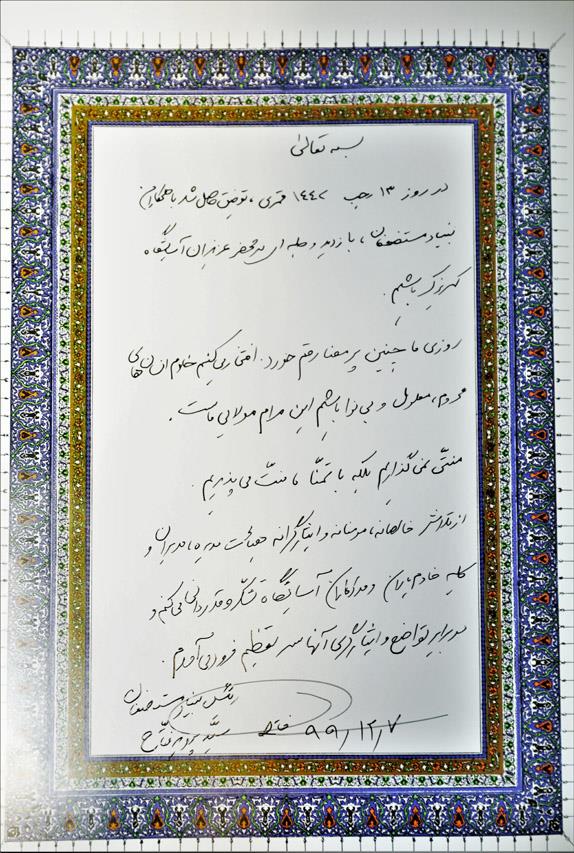 بسمه تعالی
در روز ۱۳ رجب ۱۴۴۲ قمری، توفیق حاصل شد با همکاران
بنیاد مستضعفان، بازدید و جلسه ای در محضر عزیزان آسایشگاه
کهریزک باشیم.
روزی ما چنین پر معنا رقم خورد. افتخار می کنیم خادم انسان های
محروم، معلول و بی نوا باشیم این مرام مولای ماست.
منتی نمی گذاریم بلکه با تمنا منت می پذیریم.
از تلاش خالصانه، مومنانه و ایثارگرانه هیات مدیره، مدیران و
کلیه خادمان و مددکاران آسایشگاه تشکر و قدردانی می کنم و
در برابر تواضع و ایثارگری آنها سر تعظیم فرود می آورم.
رئیس بنیاد مستضعفان
سید پرویز فتاح
۹۹/۱۲/۷